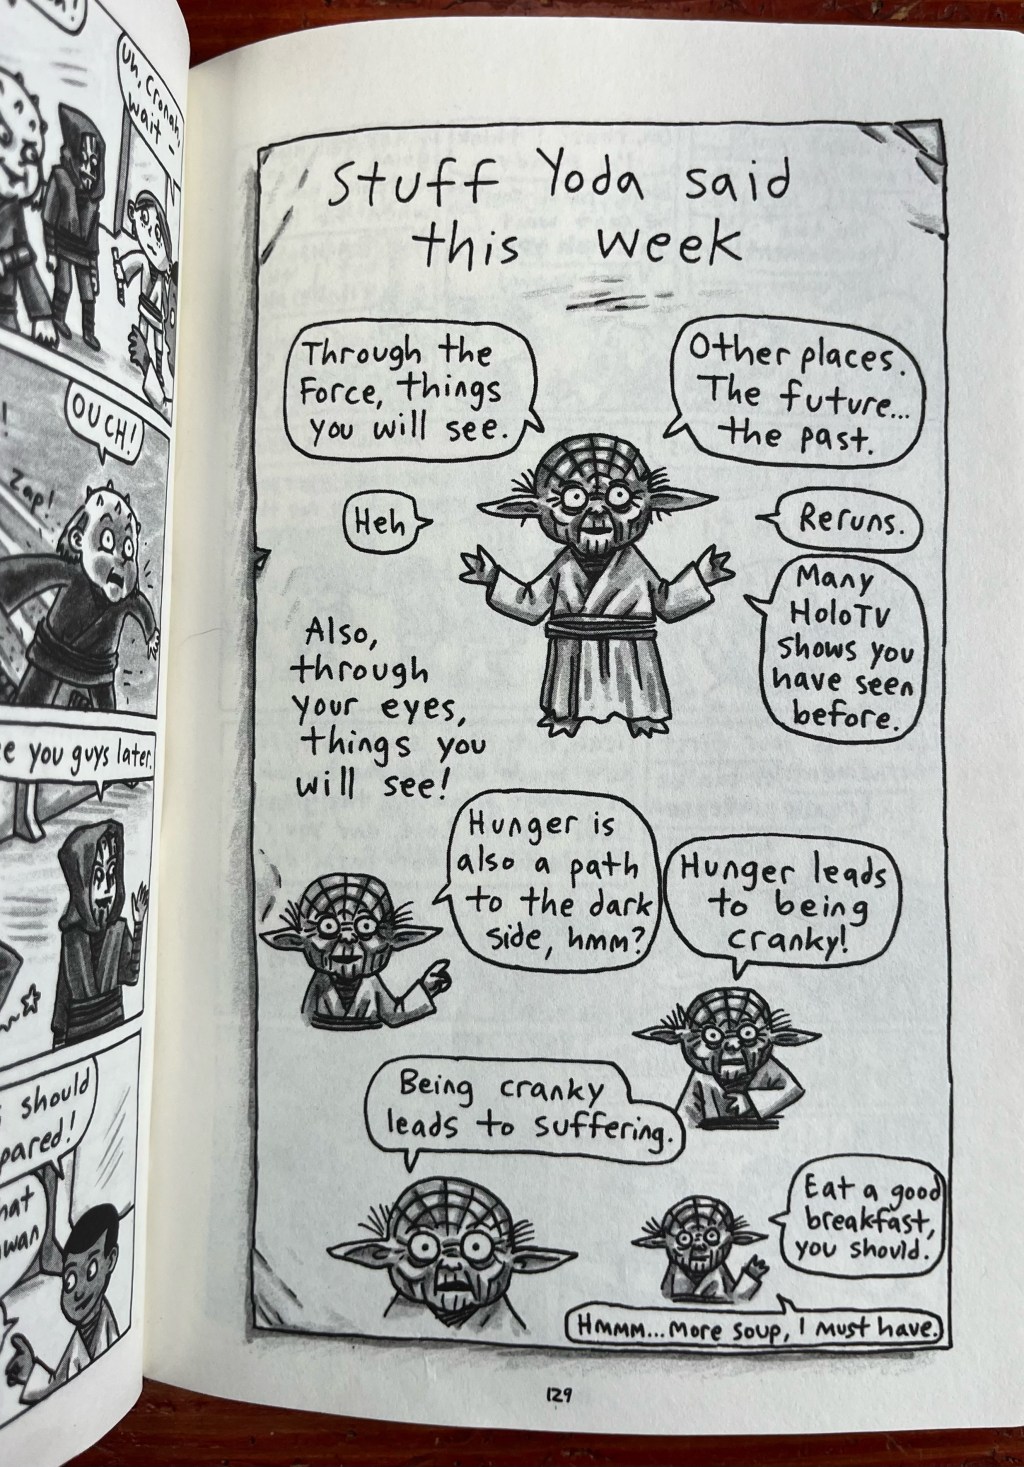 Uh, Cronah,
wait -
OUCH!
Zap!
you guys later.
should
Stuff Yoda said
this week
Through the
Force, things
you will see.
Other places.
The future...
the past.
Heh
Reruns.
Many
HoloTV
shows you
have seen
before.
Also,
through
your eyes,
things you
will see!
Hunger is
also a path
to the dark
side, hmm?
Hunger leads
to being
cranky!
Being cranky
leads to suffering.
Eat a good
breakfast,
you should.
Hmmm... more soup, I must have.
129